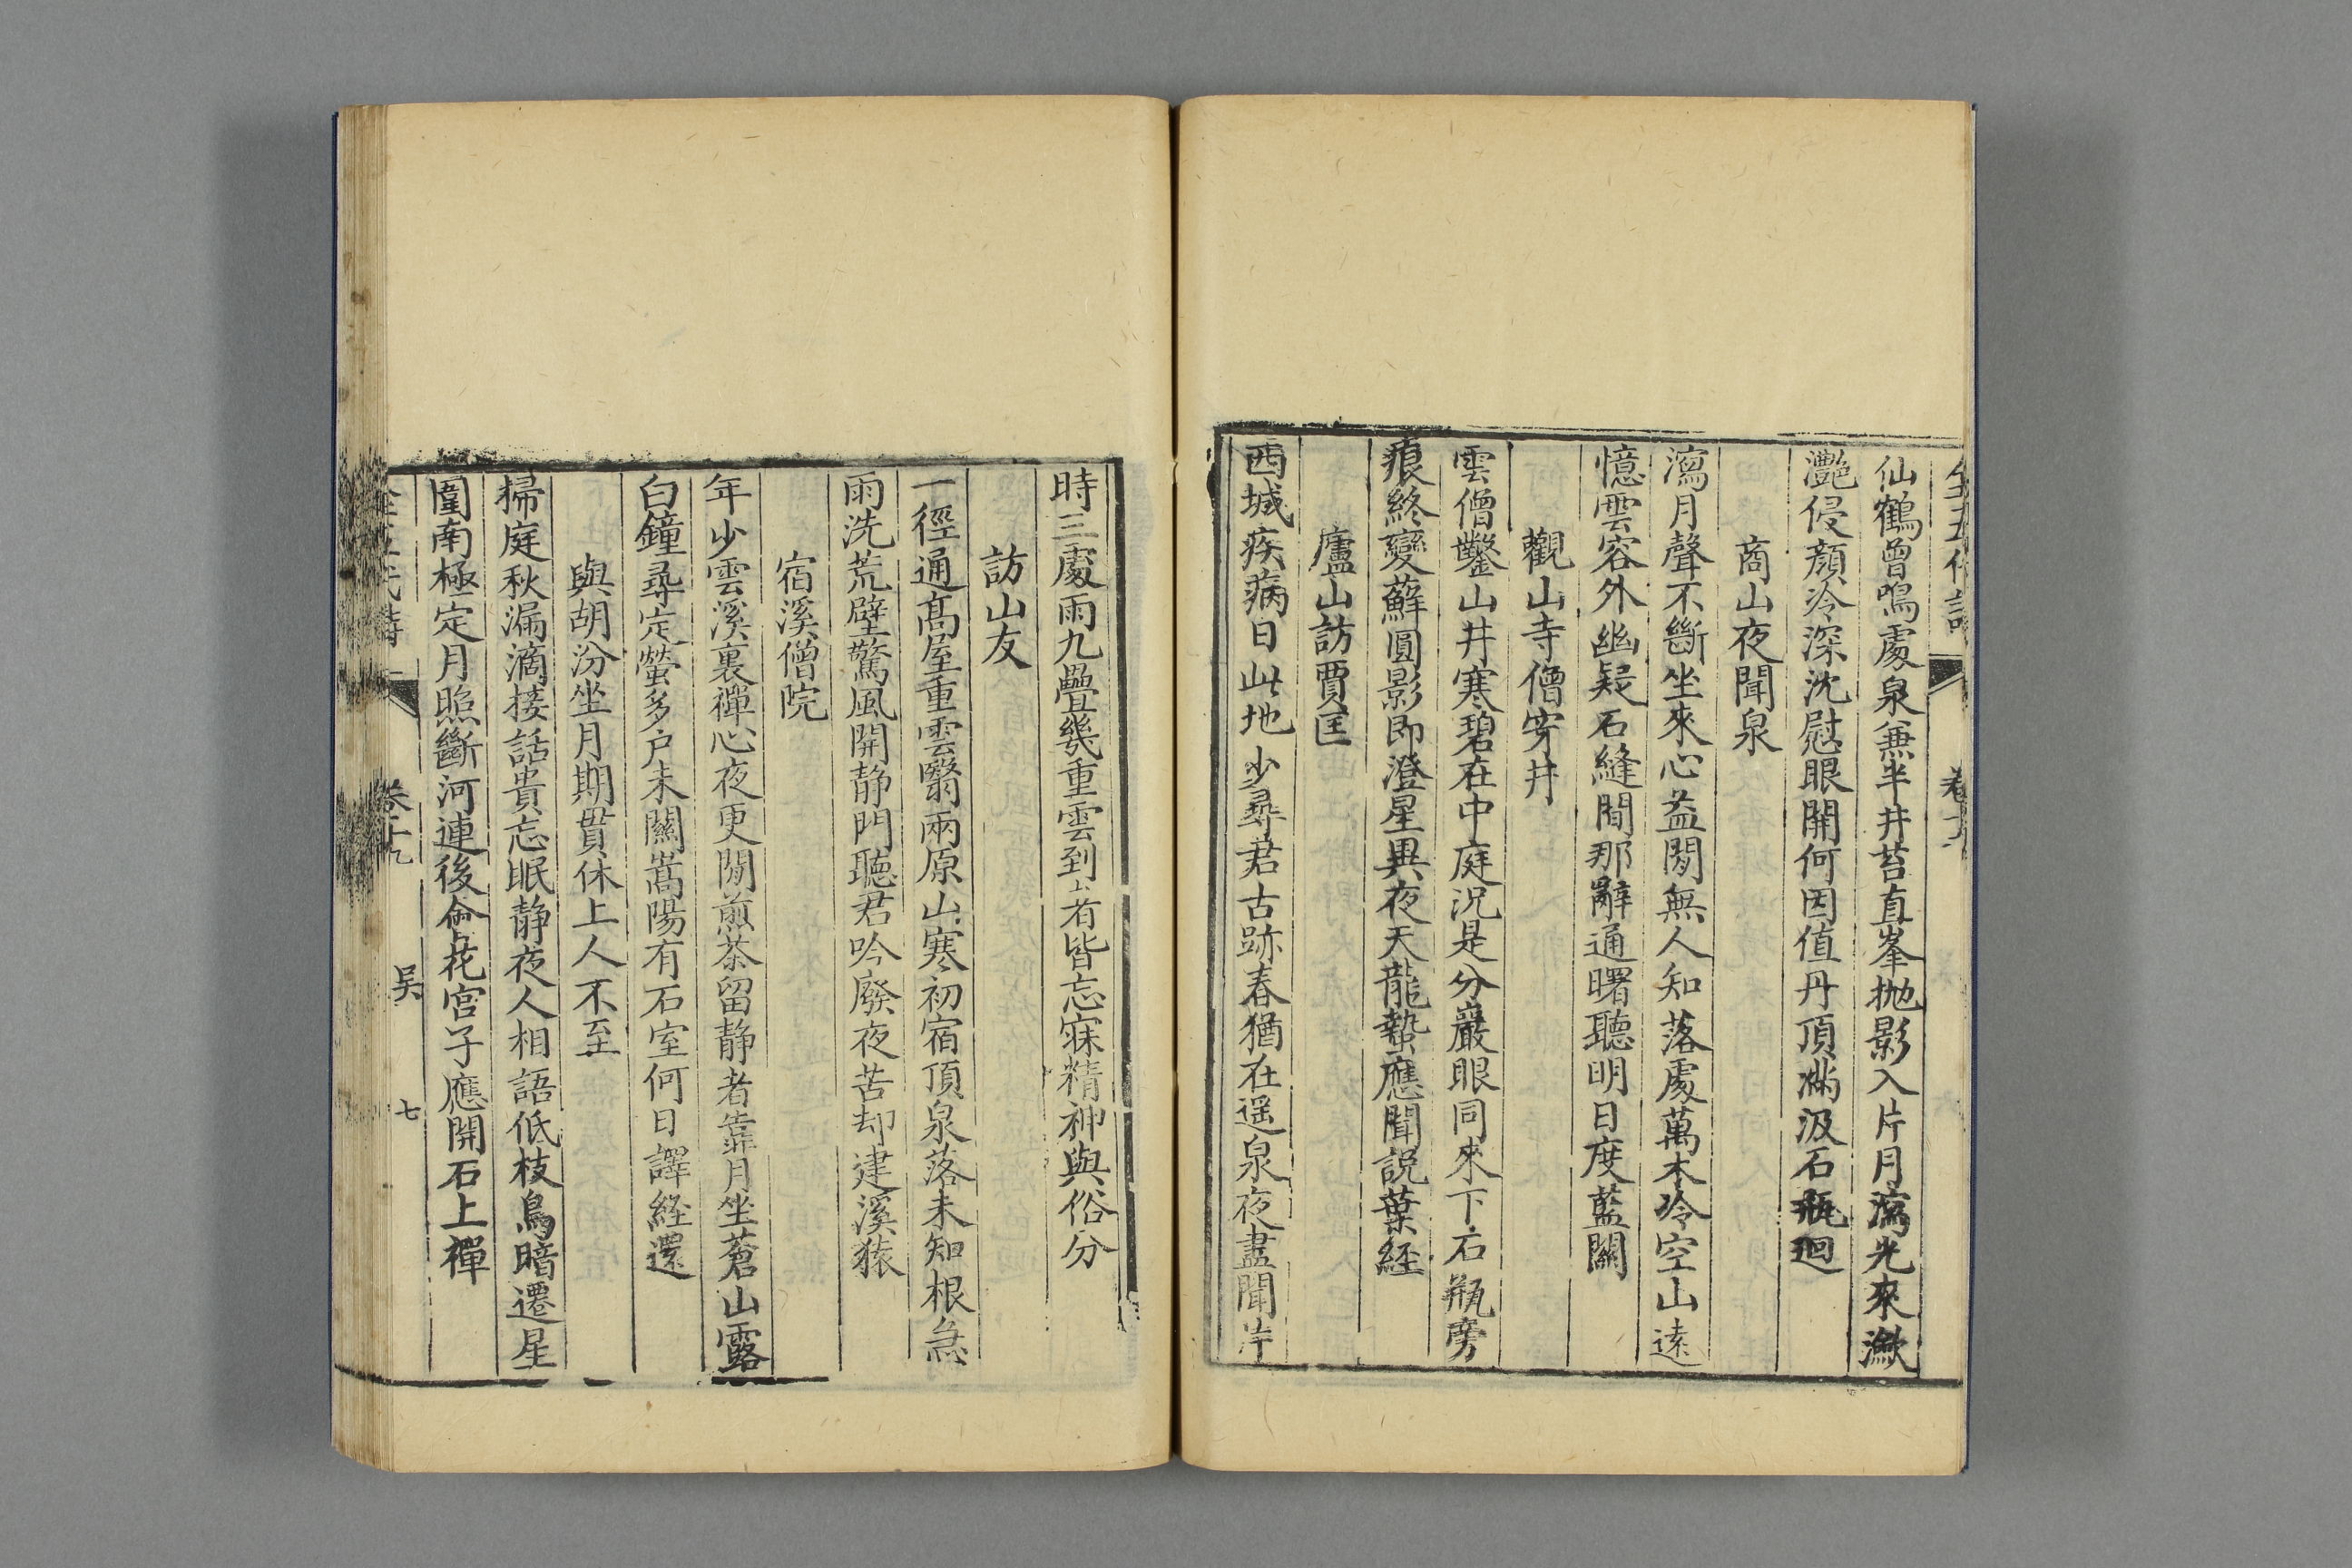 仙鶴曾鳴處泉兼半井苔直峯拋影入片月瀉光來瀲
灩侵顏冷深沈慰眼開何因值丹頂滿汲石瓶迴
商山夜聞泉
瀉月聲不斷坐來心益閒無人知落處萬木冷空山遠
憶雲容外幽疑石縫間那辭通曙聽明日度藍關
觀山寺僧穿井
雲僧鑿山井寒碧在中庭況是分巖眼同來下石瓶旁
痕終變蘚圓影即澄星異夜天龍蟄應聞說葉経
廬山訪賈匡
西城疾病日此地少尋君古跡春猶在遥泉夜盡聞片
時三處雨九疊幾重雲到者皆忘寐精神與俗分
訪山友
一徑通髙屋重雲翳兩原山寒初宿頂泉落未知根急
雨洗荒壁驚風開静門聽君吟廢夜苦却建溪猿
宿溪僧院
年少雲溪裏禪心夜更閒煎茶留静者靠月坐蒼山露
白鐘尋定螢多户未關嵩陽有石室何日譯経還
與胡汾坐月期貫休上人不至
掃庭秋漏滴接話貴忘眠静夜人相語低枝鳥暗遷星
圍南極定月照斷河連後會花宫子應開石上禪
卷十九
吴
七